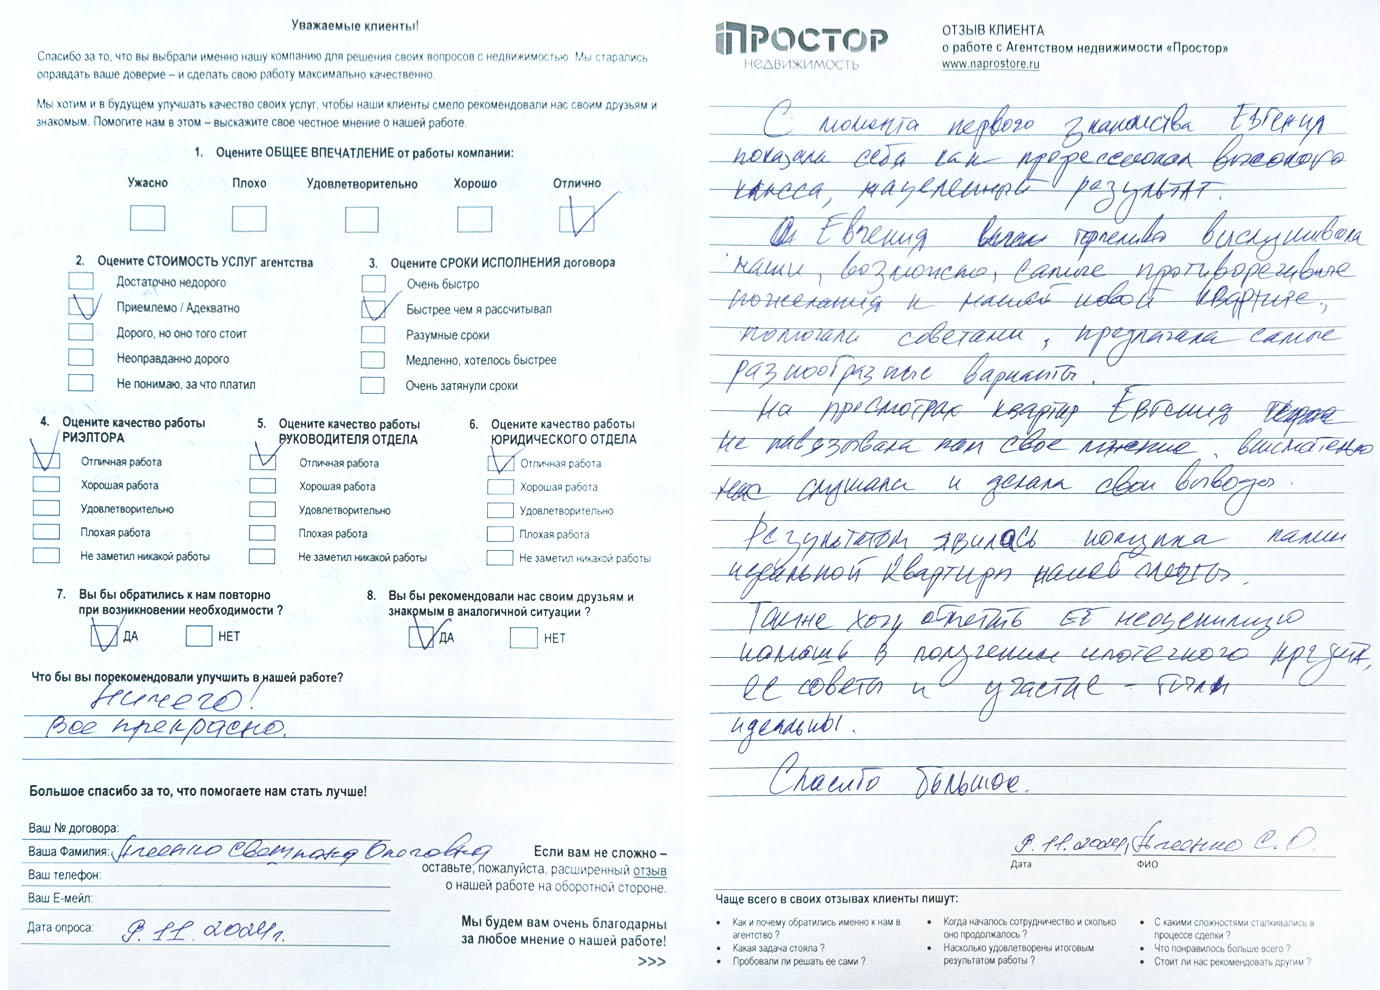 Уважаемые клиенты!
Спасибо за то, что вы выбрали именно нашу компанию для решения своих вопросов с недвижимостью. Мы старались
оправдать ваше доверие – и сделать свою работу максимально качественно.
Мы хотим и в будущем улучшать качество своих услуг, чтобы наши клиенты смело рекомендовали нас своим друзьям и
знакомым. Помогите нам в этом – выскажите свое честное мнение о нашей работе.
1. Оцените ОБЩЕЕ ВПЕЧАТЛЕНИЕ от работы компании:
Ужасно Плохо Удовлетворительно Хорошо Отлично
2. Оцените СТОИМОСТЬ УСЛУГ агентства
Достаточно недорого
Приемлемо / Адекватно
Дорого, но оно того стоит
Неоправданно дорого
Не понимаю, за что платил
3. Оцените СРОКИ ИСПОЛНЕНИЯ договора
Очень быстро
Быстрее чем я рассчитывал
Разумные сроки
Медленно, хотелось быстрее
Очень затянули сроки
4. Оцените качество работы
РИЭЛТОРА
Отличная работа
Хорошая работа
Удовлетворительно
Плохая работа
Не заметил никакой работы
5. Оцените качество работы
РУКОВОДИТЕЛЯ ОТДЕЛА
Отличная работа
Хорошая работа
Удовлетворительно
Плохая работа
Не заметил никакой работы
6. Оцените качество работы
ЮРИДИЧЕСКОГО ОТДЕЛА
Отличная работа
Хорошая работа
Удовлетворительно
Плохая работа
Не заметил никакой работы
7. Вы бы обратились к нам повторно
при возникновении необходимости ?
ДА НЕТ
8. Вы бы рекомендовали нас своим друзьям и
знакомым в аналогичной ситуации ?
ДА НЕТ
Что бы вы порекомендовали улучшить в нашей работе?
Ничего!
Все прекрасно.
Большое спасибо за то, что помогаете нам стать лучше!
Ваш № договора:
Ваша Фамилия: Светлана Олеговна
Ваш телефон:
Ваш Е-мейл:
Дата опроса: 9.11.2024г.
Если вам не сложно –
оставьте, пожалуйста, расширенный отзыв
о нашей работе на оборотной стороне.
Мы будем вам очень благодарны
за любое мнение о нашей работе!
>>>
ПРОСТОР
НЕДВИЖИМОСТЬ
ОТЗЫВ КЛИЕНТА
о работе с Агентством недвижимости «Простор»
www.naprostore.ru
С момента первого знакомства Евгения
показала себя как профессионал высокого
класса, нацеленный результат.
Евгения терпеливо выслушивала
наши, возможно, самые противоречивые
пожелания к нашей новой квартире,
помогала советами, предлагала самые
разнообразные варианты.
На просмотрах квартир Евгения
не навязывала нам свое мнение, внимательно
нас слушала и делала свои выводы.
Результатом явилась покупка нами
идеальной квартиры нашей мечты.
Также хочу отметить ЕЕ неоценимую
помощь в получении ипотечного кредита,
ее советы и участие – были
идеальны.
Спасибо большое.
9.11.2024г. С. О.
Дата ФИО
Чаще всего в своих отзывах клиенты пишут:
• Как и почему обратились именно к нам в
агентство ?
• Какая задача стояла ?
• Пробовали ли решать ее сами ?
• Когда началось сотрудничество и сколько
оно продолжалось ?
• Насколько удовлетворены итоговым
результатом работы ?
• С какими сложностями сталкивались в
процессе сделки ?
• Что понравилось больше всего ?
• Стоит ли нас рекомендовать другим ?